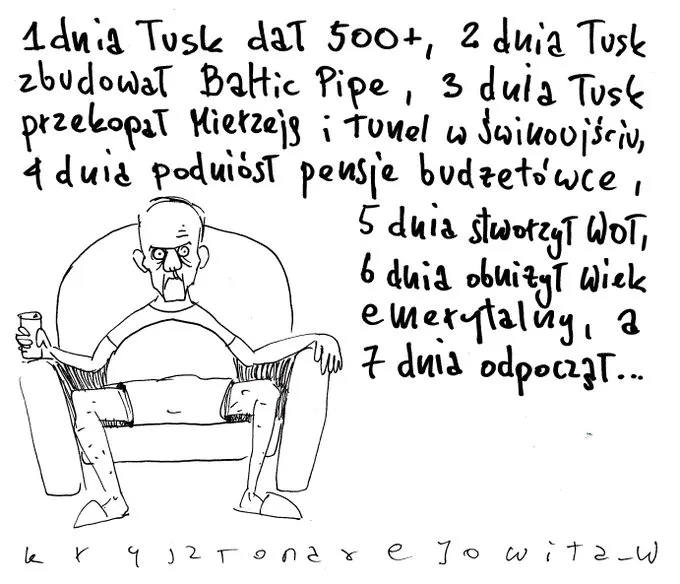 1 dnia Tusk dał 500+, 2 dnia Tusk
zbudował Baltic Pipe, 3 dnia Tusk
przekopał Mierzeję i tunel w Świnoujściu,
4 dnia podniósł pensje budżetówce,
5 dnia stworzył WOT,
6 dnia obniżył wiek
emerytalny, a
7 dnia odpoczął...
krysztonarejowita_w